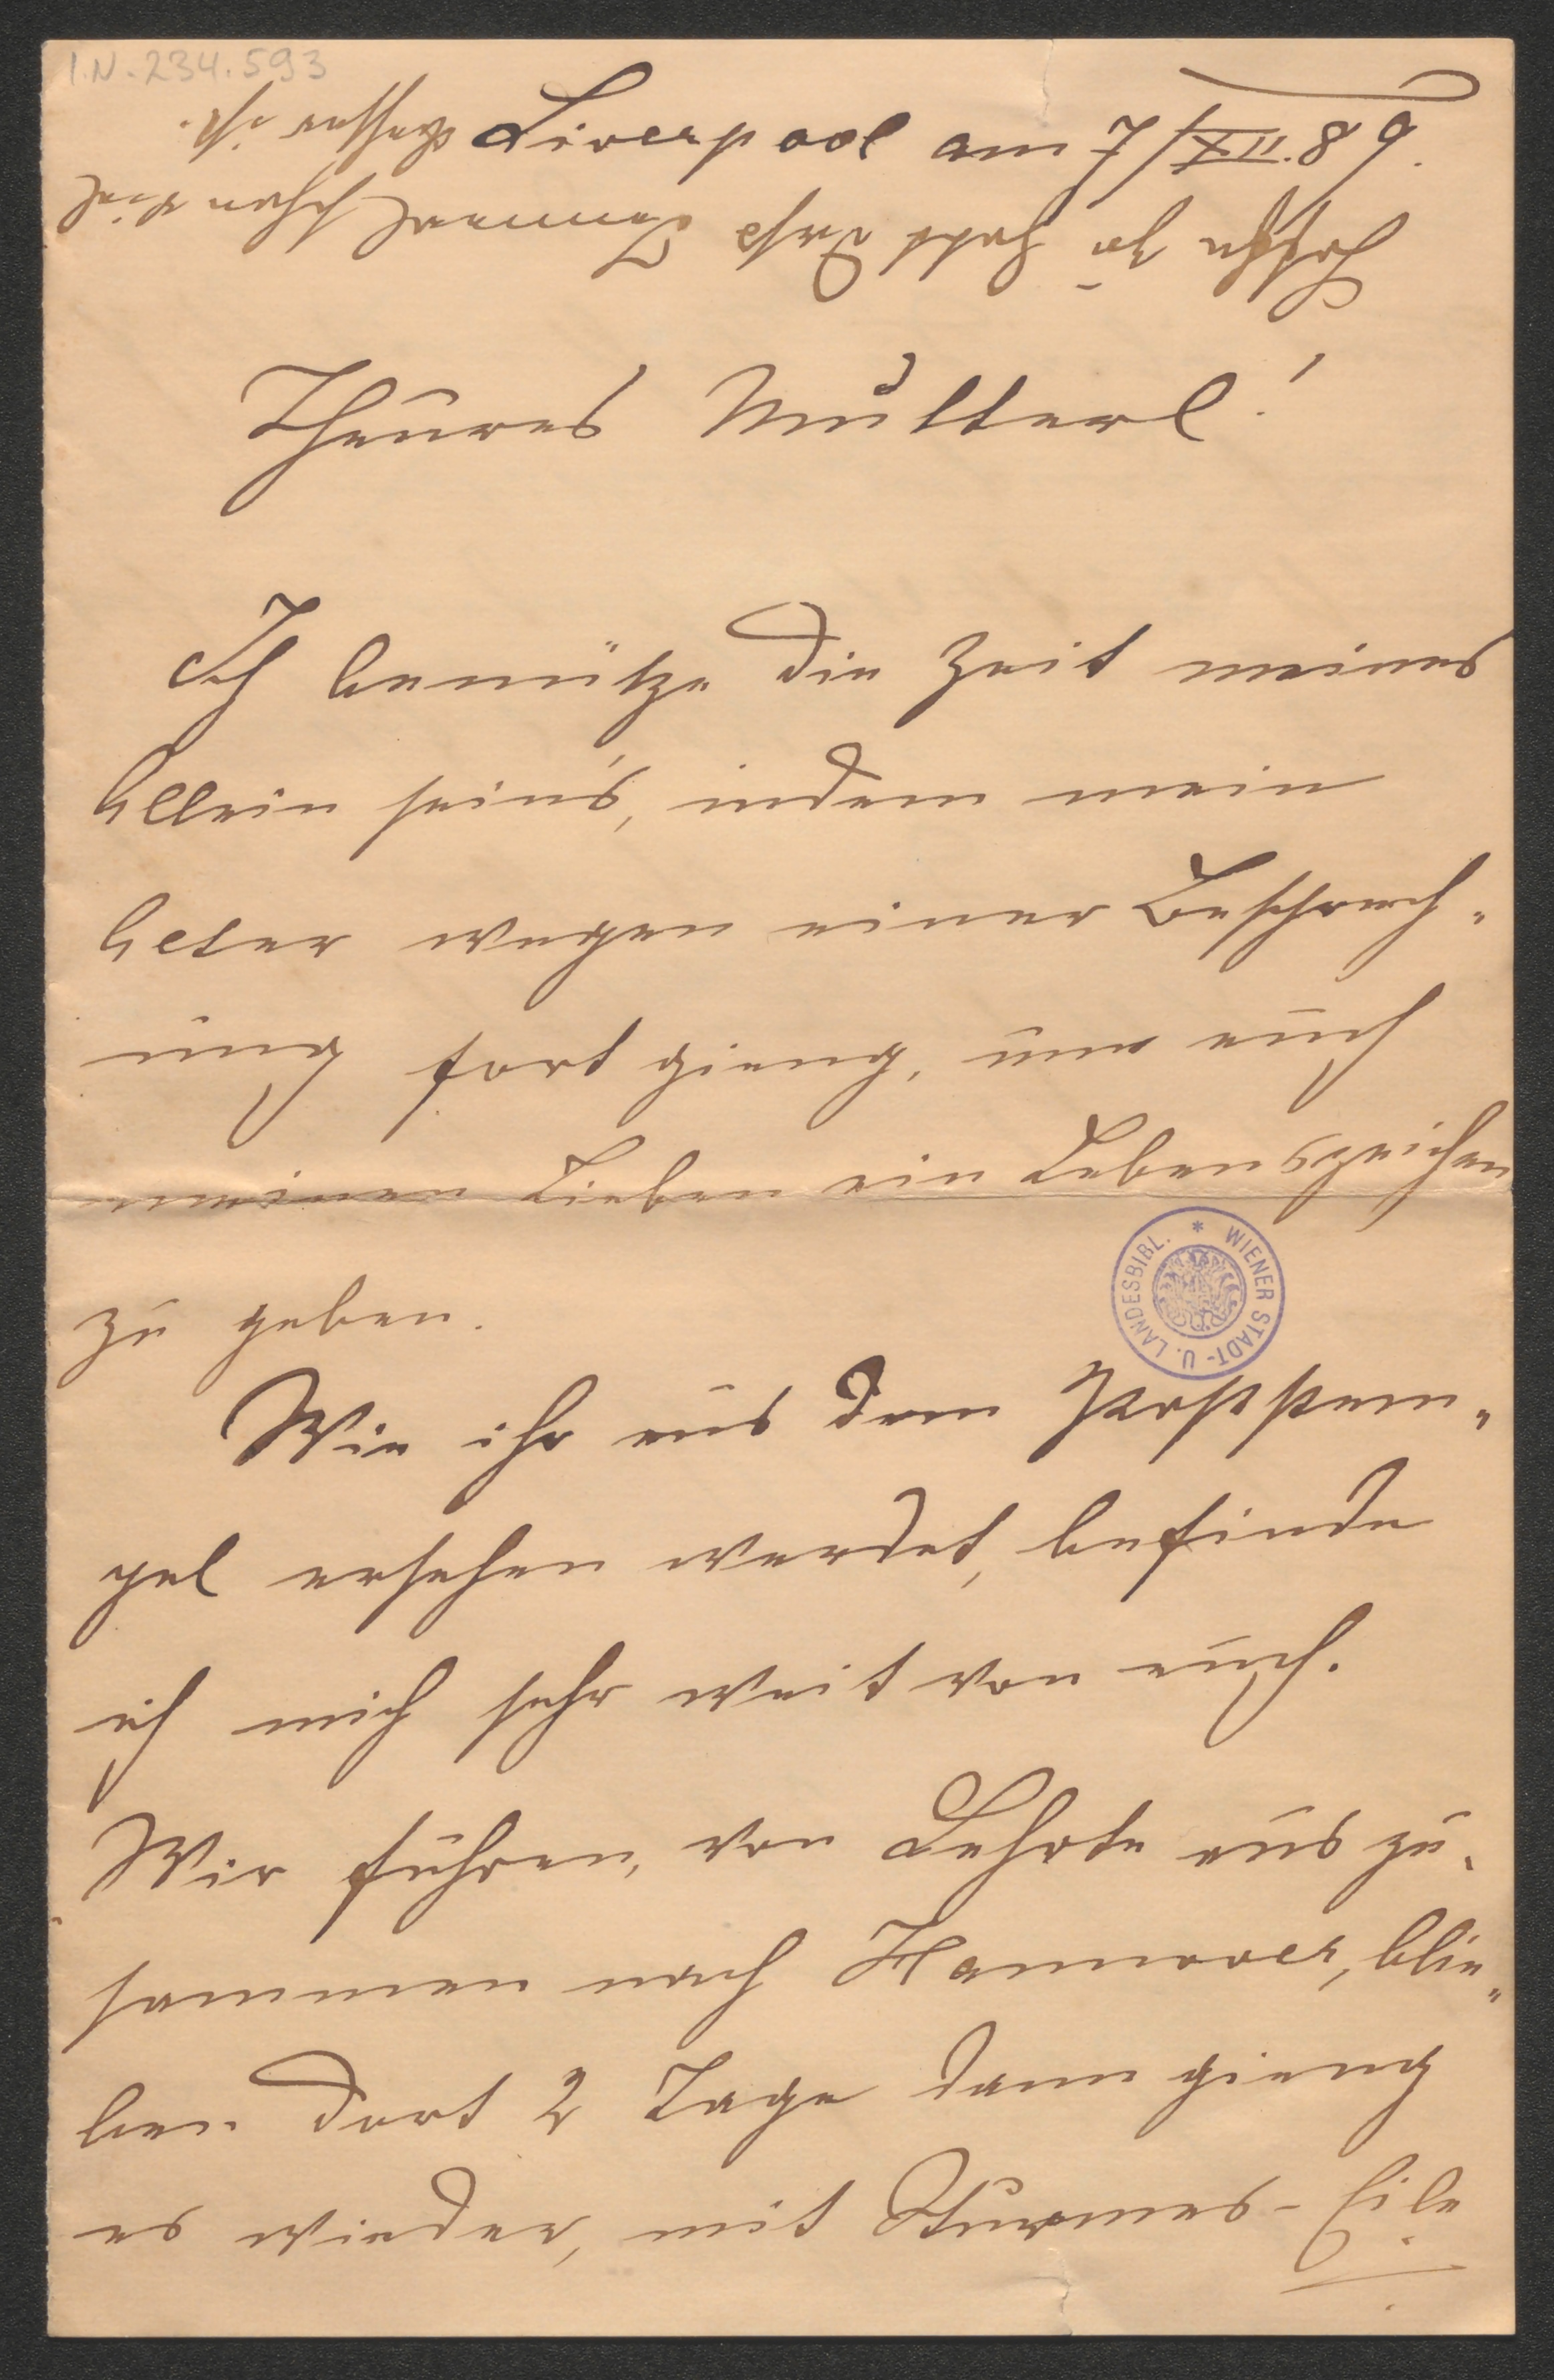 I.N. 234.593
Liverpool am 7/XII. 89.
Theures Mutterl!
Ich benütze die Zeit meines
Allein sein's, indem mein
Alter wegen einer Besprech-
ung fort gieng, um euch
meinen Lieben ein Lebenszeichen
zu geben.
Wie ihr aus dem Poststem-
pel ersehen werdet, befinde
ich mich sehr weit von euch.
Wir fuhren, von Lehrte aus zu-
sammen nach Hannover, blie-
ben dort 2 Tage dann gieng
es wieder, mit Sturmes-Eile
daß Dammal schon viel
besser ist.
WIENER STADT- U. LANDESBIBL. *